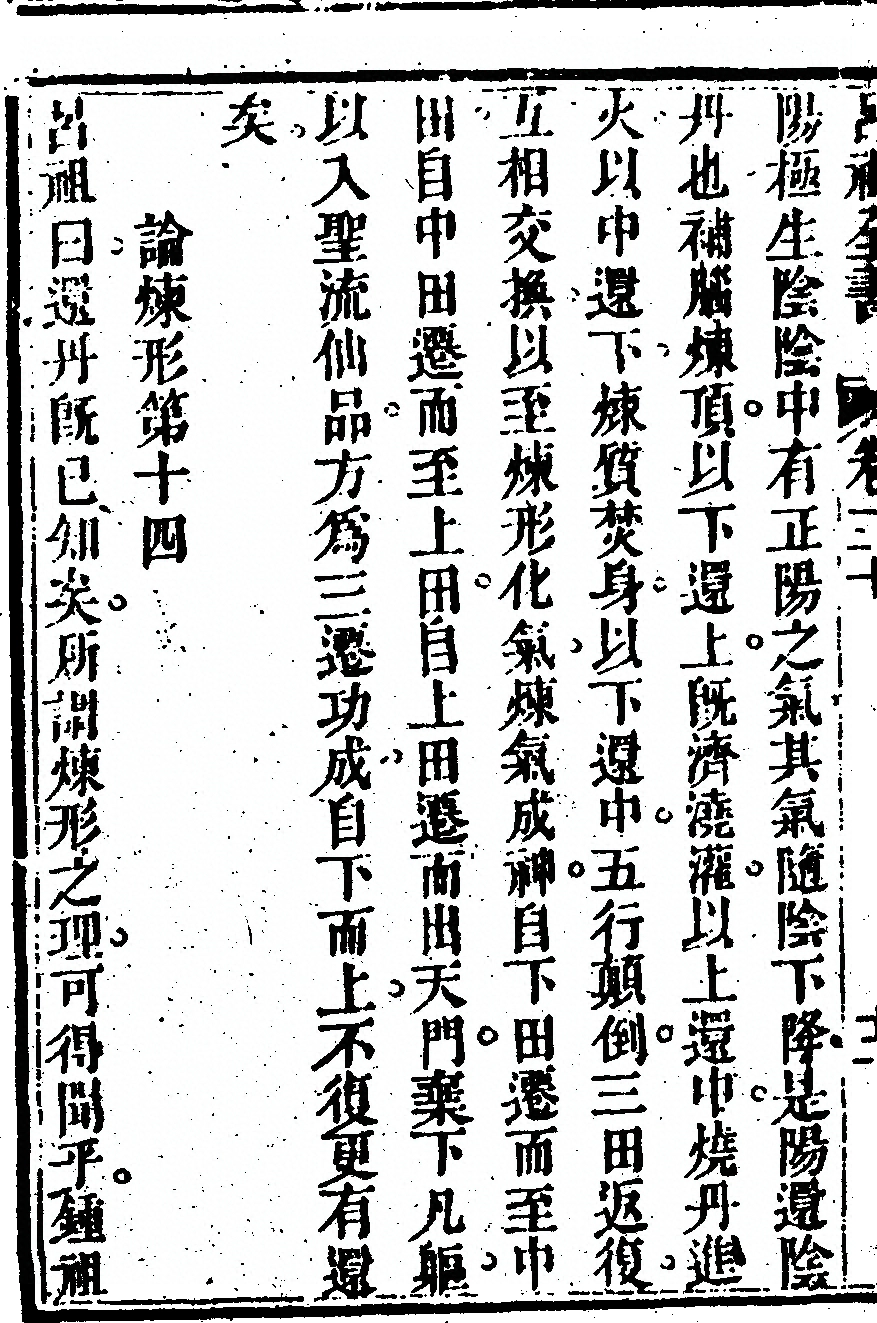 呂祖全書　卷三十　十二
陽極生陰陰中有正陽之氣其氣隨陰下降是陽還陰
丹也補腦煉頂以下還上既濟澆灌以上還中燒丹進
火以中還下煉質焚身以下還中五行顛倒三田返復
互相交換以至煉形化氣煉氣成神自下田遷而至中
田自中田遷而至上田自上田遷而出天門棄下凡軀
以入聖流仙品方爲三遷功成自下而上不復更有還
矣
論煉形第十四
呂祖曰還丹旣已知矣所謂煉形之理可得聞乎鍾祖